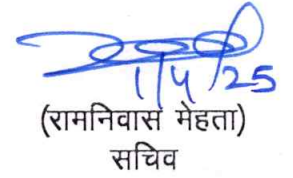 1/4/25
(रामनिवास मेहता)
सचिव